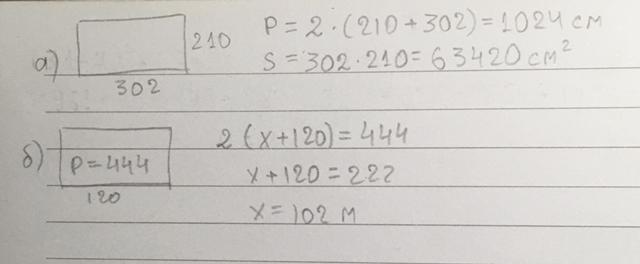 а) 210 P = 2 · (210 + 302) = 1024 см
302 S = 302 · 210 = 63420 см²
б) P = 444 2 (x + 120) = 444
120 x + 120 = 222
x = 102 м